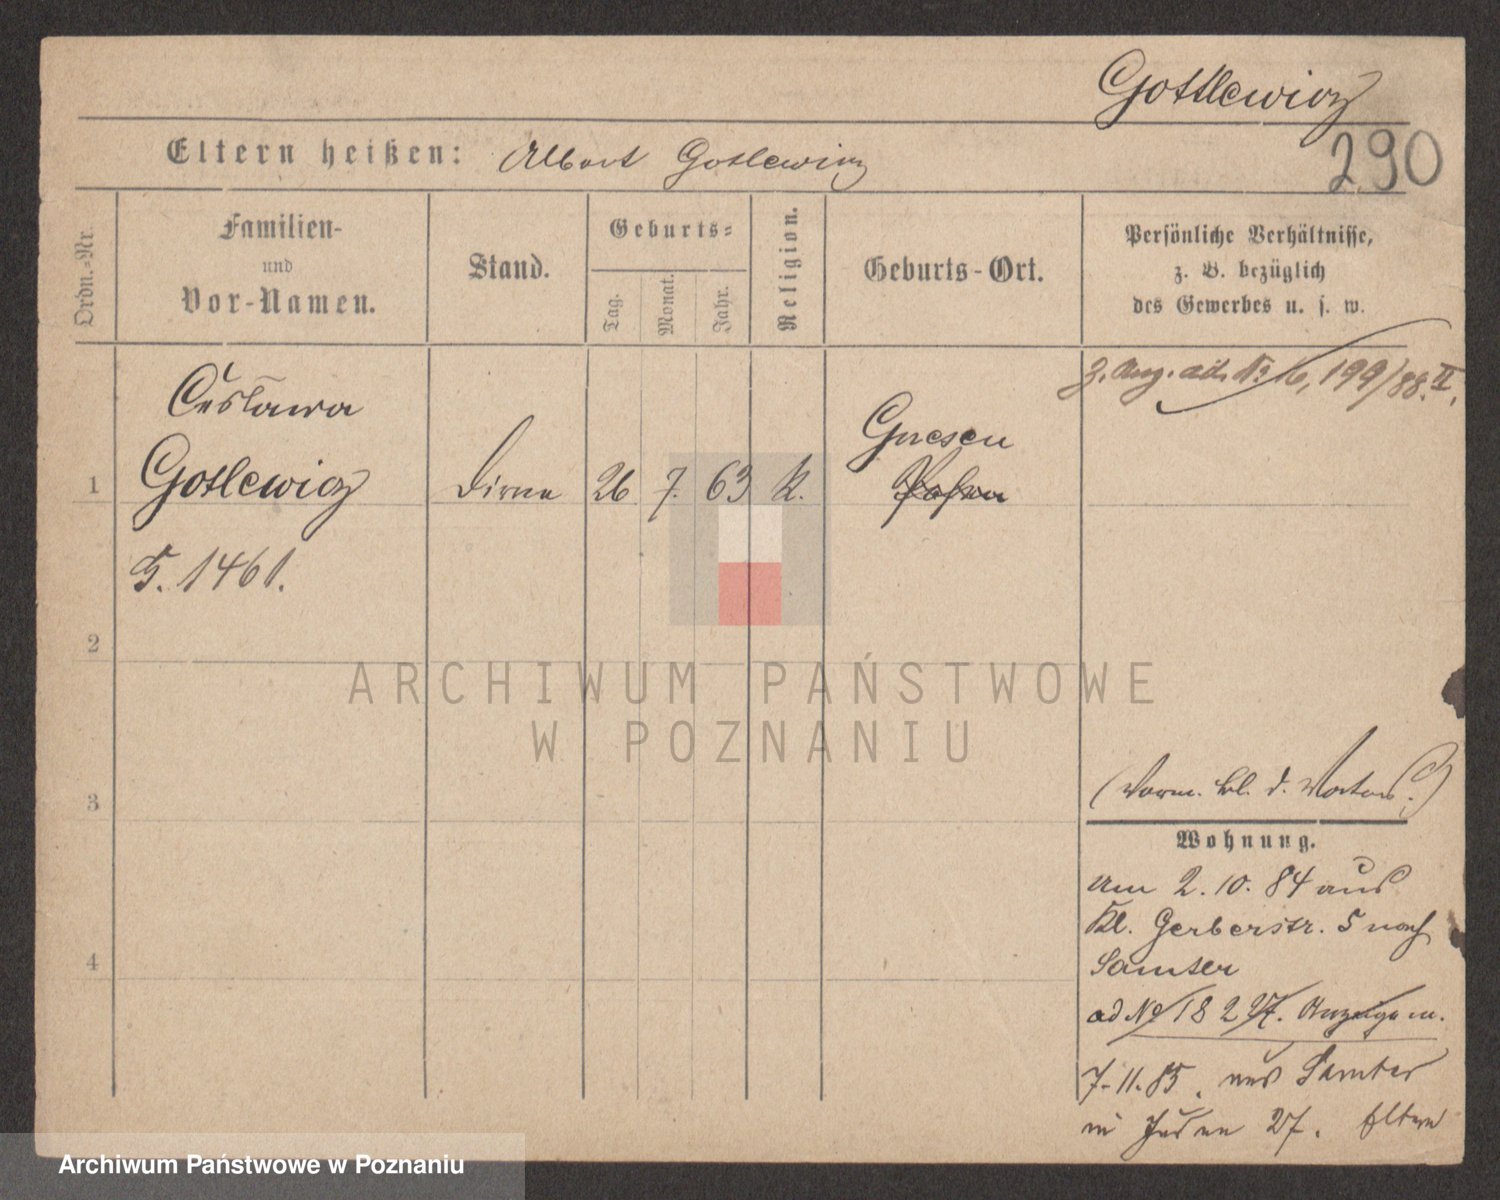 Gottlewicz
290
Eltern heißen: Albert Gotlewicz
Ordn.-Nr.
Familien-
und
Vor-Namen.
Stand.
Geburts-
Tag.
Monat.
Jahr.
Religion.
Geburts-Ort.
Persönliche Verhältnisse,
z. B. bezüglich
des Gewerbes u. s. w.
199/88. II.
1
Česlawa
Gotlewicz
Dirne
26
7.
63
k.
Gnesen
Posen
G. 1461.
2
3
4
Wohnung.
am 2. 10. 84 aus
Kl. Gerberstr. 5 nach
Samter
ad No 18 2 27. Anzeige
7. 11. 85. aus Samter
in Juden 27. Eltern
ARCHIWUM PAŃSTWOWE
W POZNANIU
Archiwum Państwowe w Poznaniu